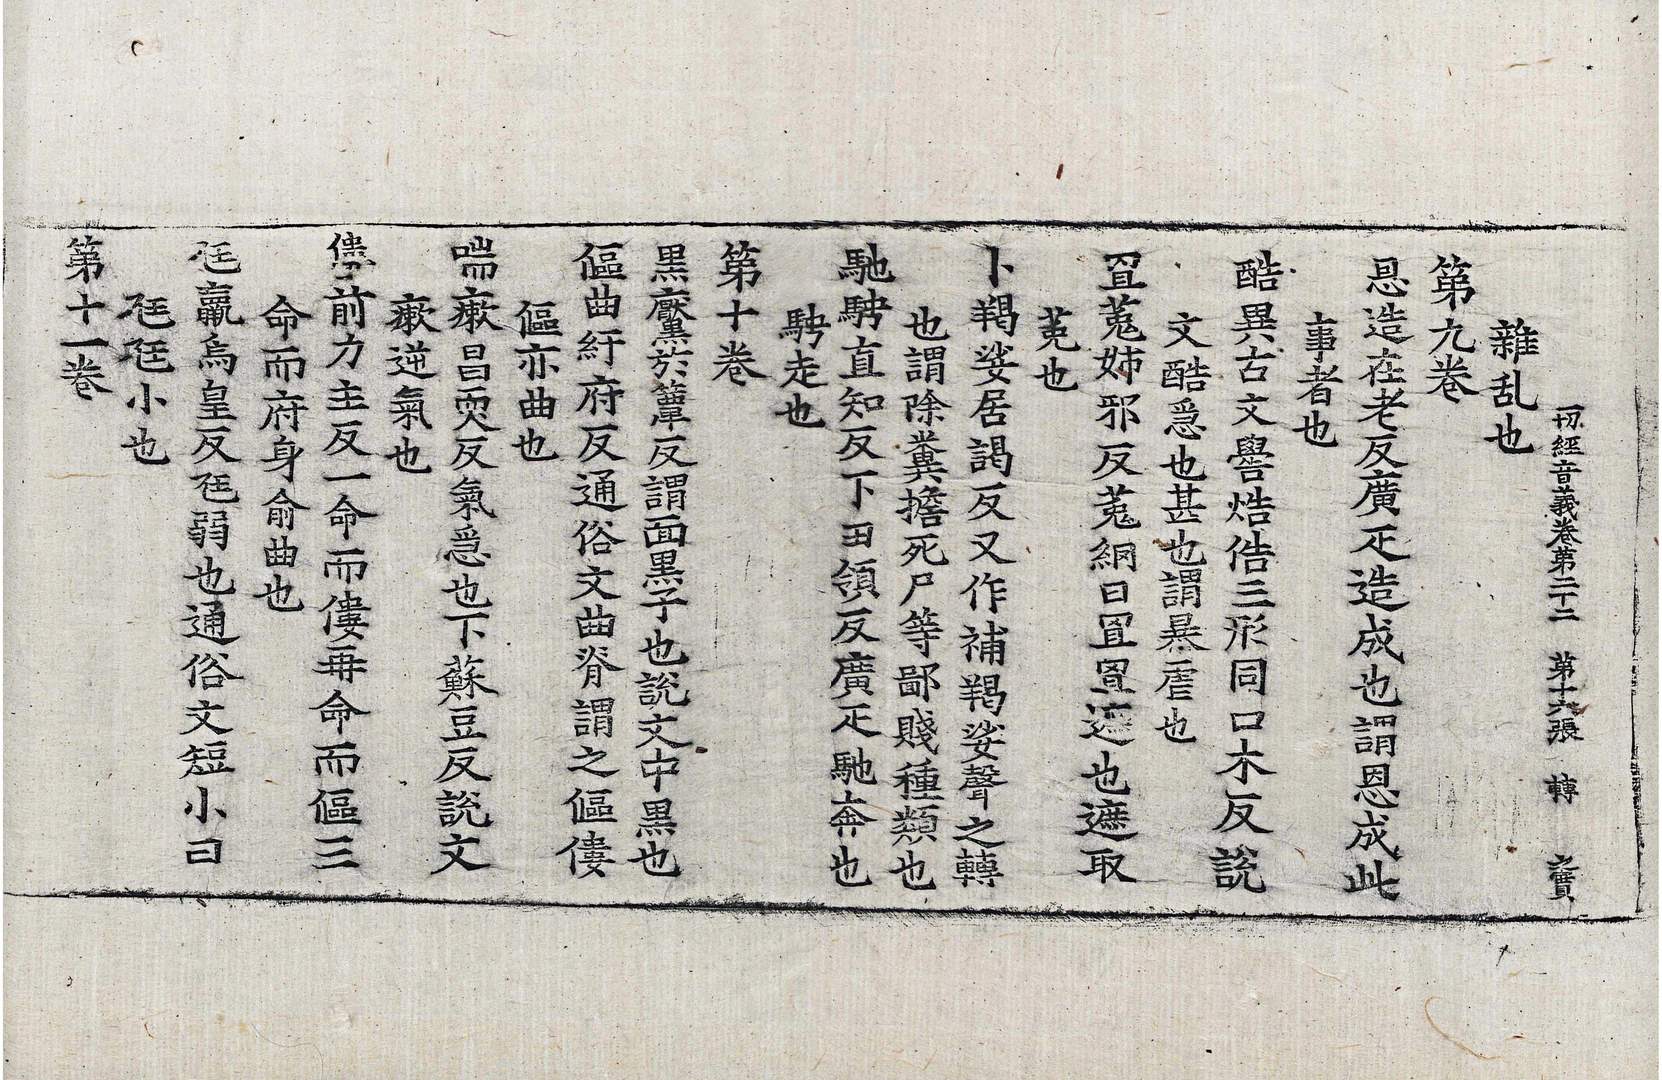 切經音義卷第二十二 第十六張 轉 寶
雜乱也
第九卷
忌造在老反廣疋造成也謂恩成此
事者也
酷異古文嚳焅俈三形同口木反說
文酷急也甚也謂暴虐也
罝菟姊邪反菟網曰罝罝遮也遮取
菟也
卜羯娑居謁反又作補羯娑聲之轉
也謂除糞擔死尸等鄙賤種類也
馳騁直知反下丑領反廣疋馳奔也
騁走也
第十卷
黑黶於簟反謂面黑子也說文中黑也
傴曲紆府反通俗文曲脊謂之傴僂
傴亦曲也
喘瘶昌耎反氣急也下蘇豆反說文
瘶逆氣也
僂前力主反一命而僂再命而傴三
命而府身俞曲也
尫羸烏皇反尫弱也通俗文短小曰
尫尫小也
第十一卷